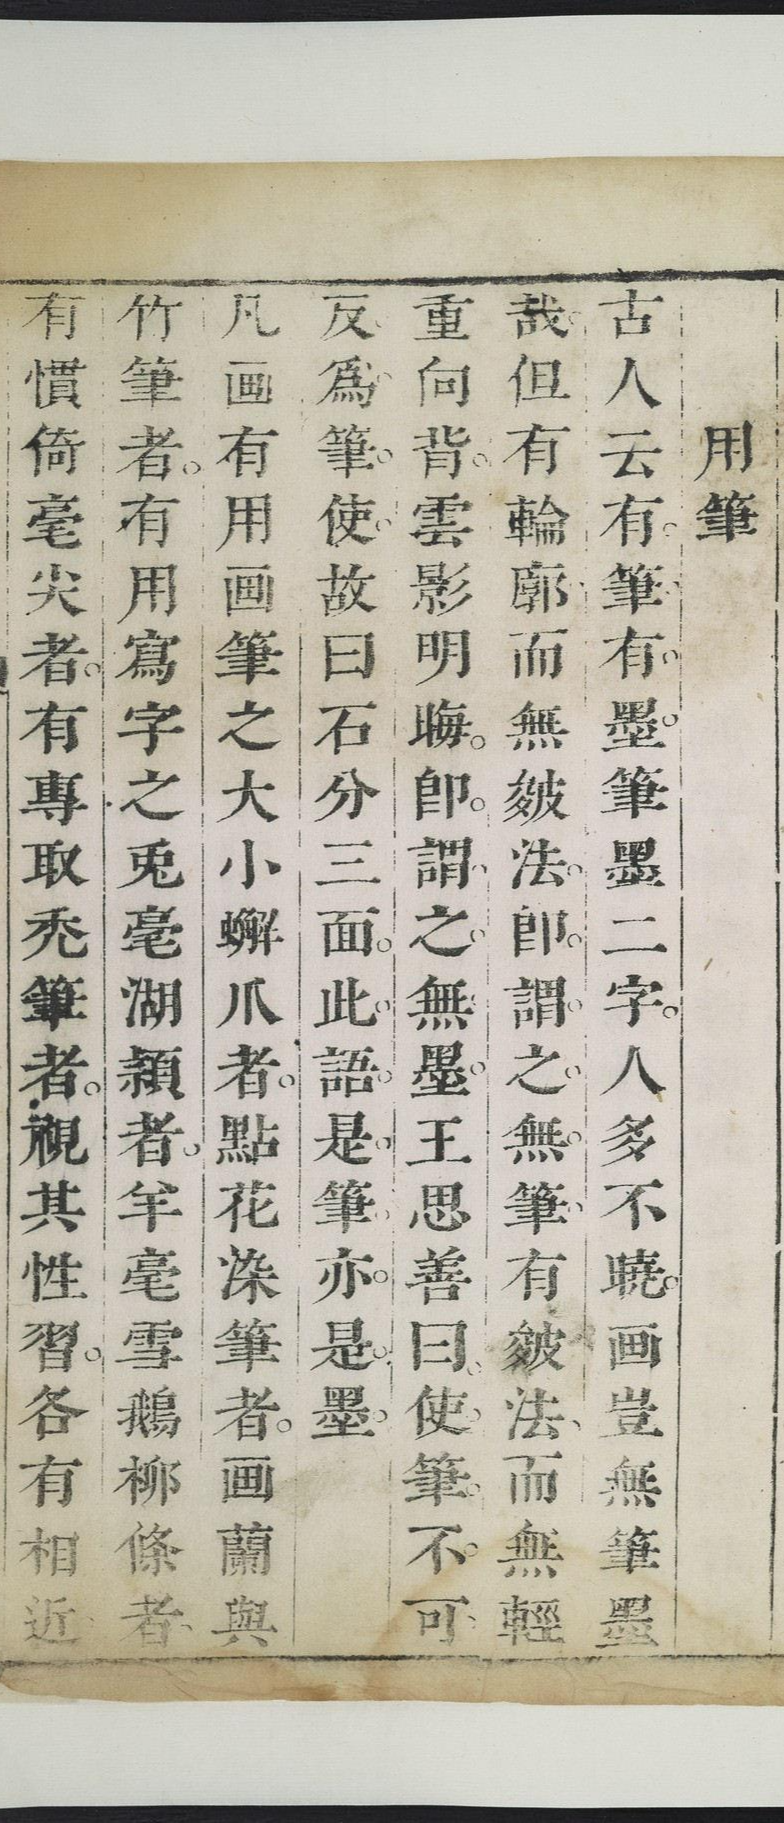 用筆
古人云有筆有墨筆墨二字人多不曉画豈無筆墨
哉但有輪廓而無皴法卽謂之無筆有皴法而無輕
重向背雲影明晦卽謂之無墨王思善曰使筆不可
反爲筆使故曰石分三面此語是筆亦是墨
凡画有用画筆之大小蠏爪者點花染筆者画蘭與
竹筆者有用寫字之兎毫湖穎者羊毫雪鵝柳條者
有慣倚毫尖者有專取禿筆者視其性習各有相近